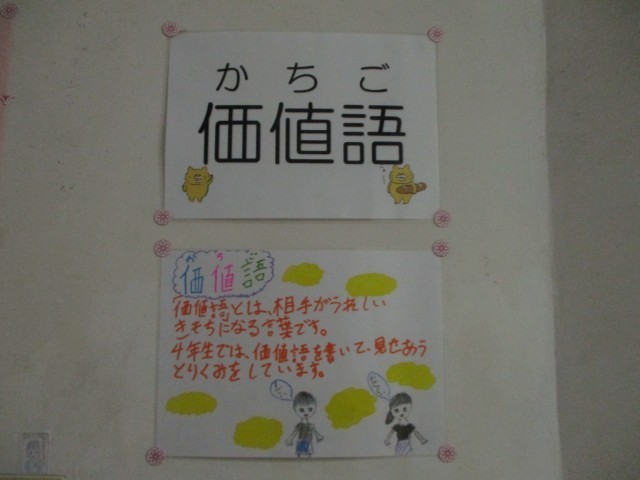 かちご
価値語
かちご
価値語
「価値語」とは、相手がうれしい
きもちになる言葉です。
4年生では、価値語を書いて、見せあう
とりくみをしています。